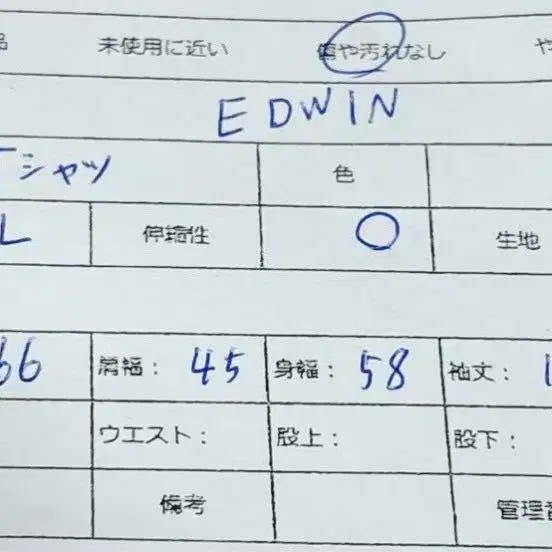 未使用に近い 傷や汚れなし や
EDWIN
Tシャツ 色
L 伸縮性 ○ 生地
66 肩幅： 45 身幅： 58 袖丈：
ウエスト： 股上： 股下：
備考 管理